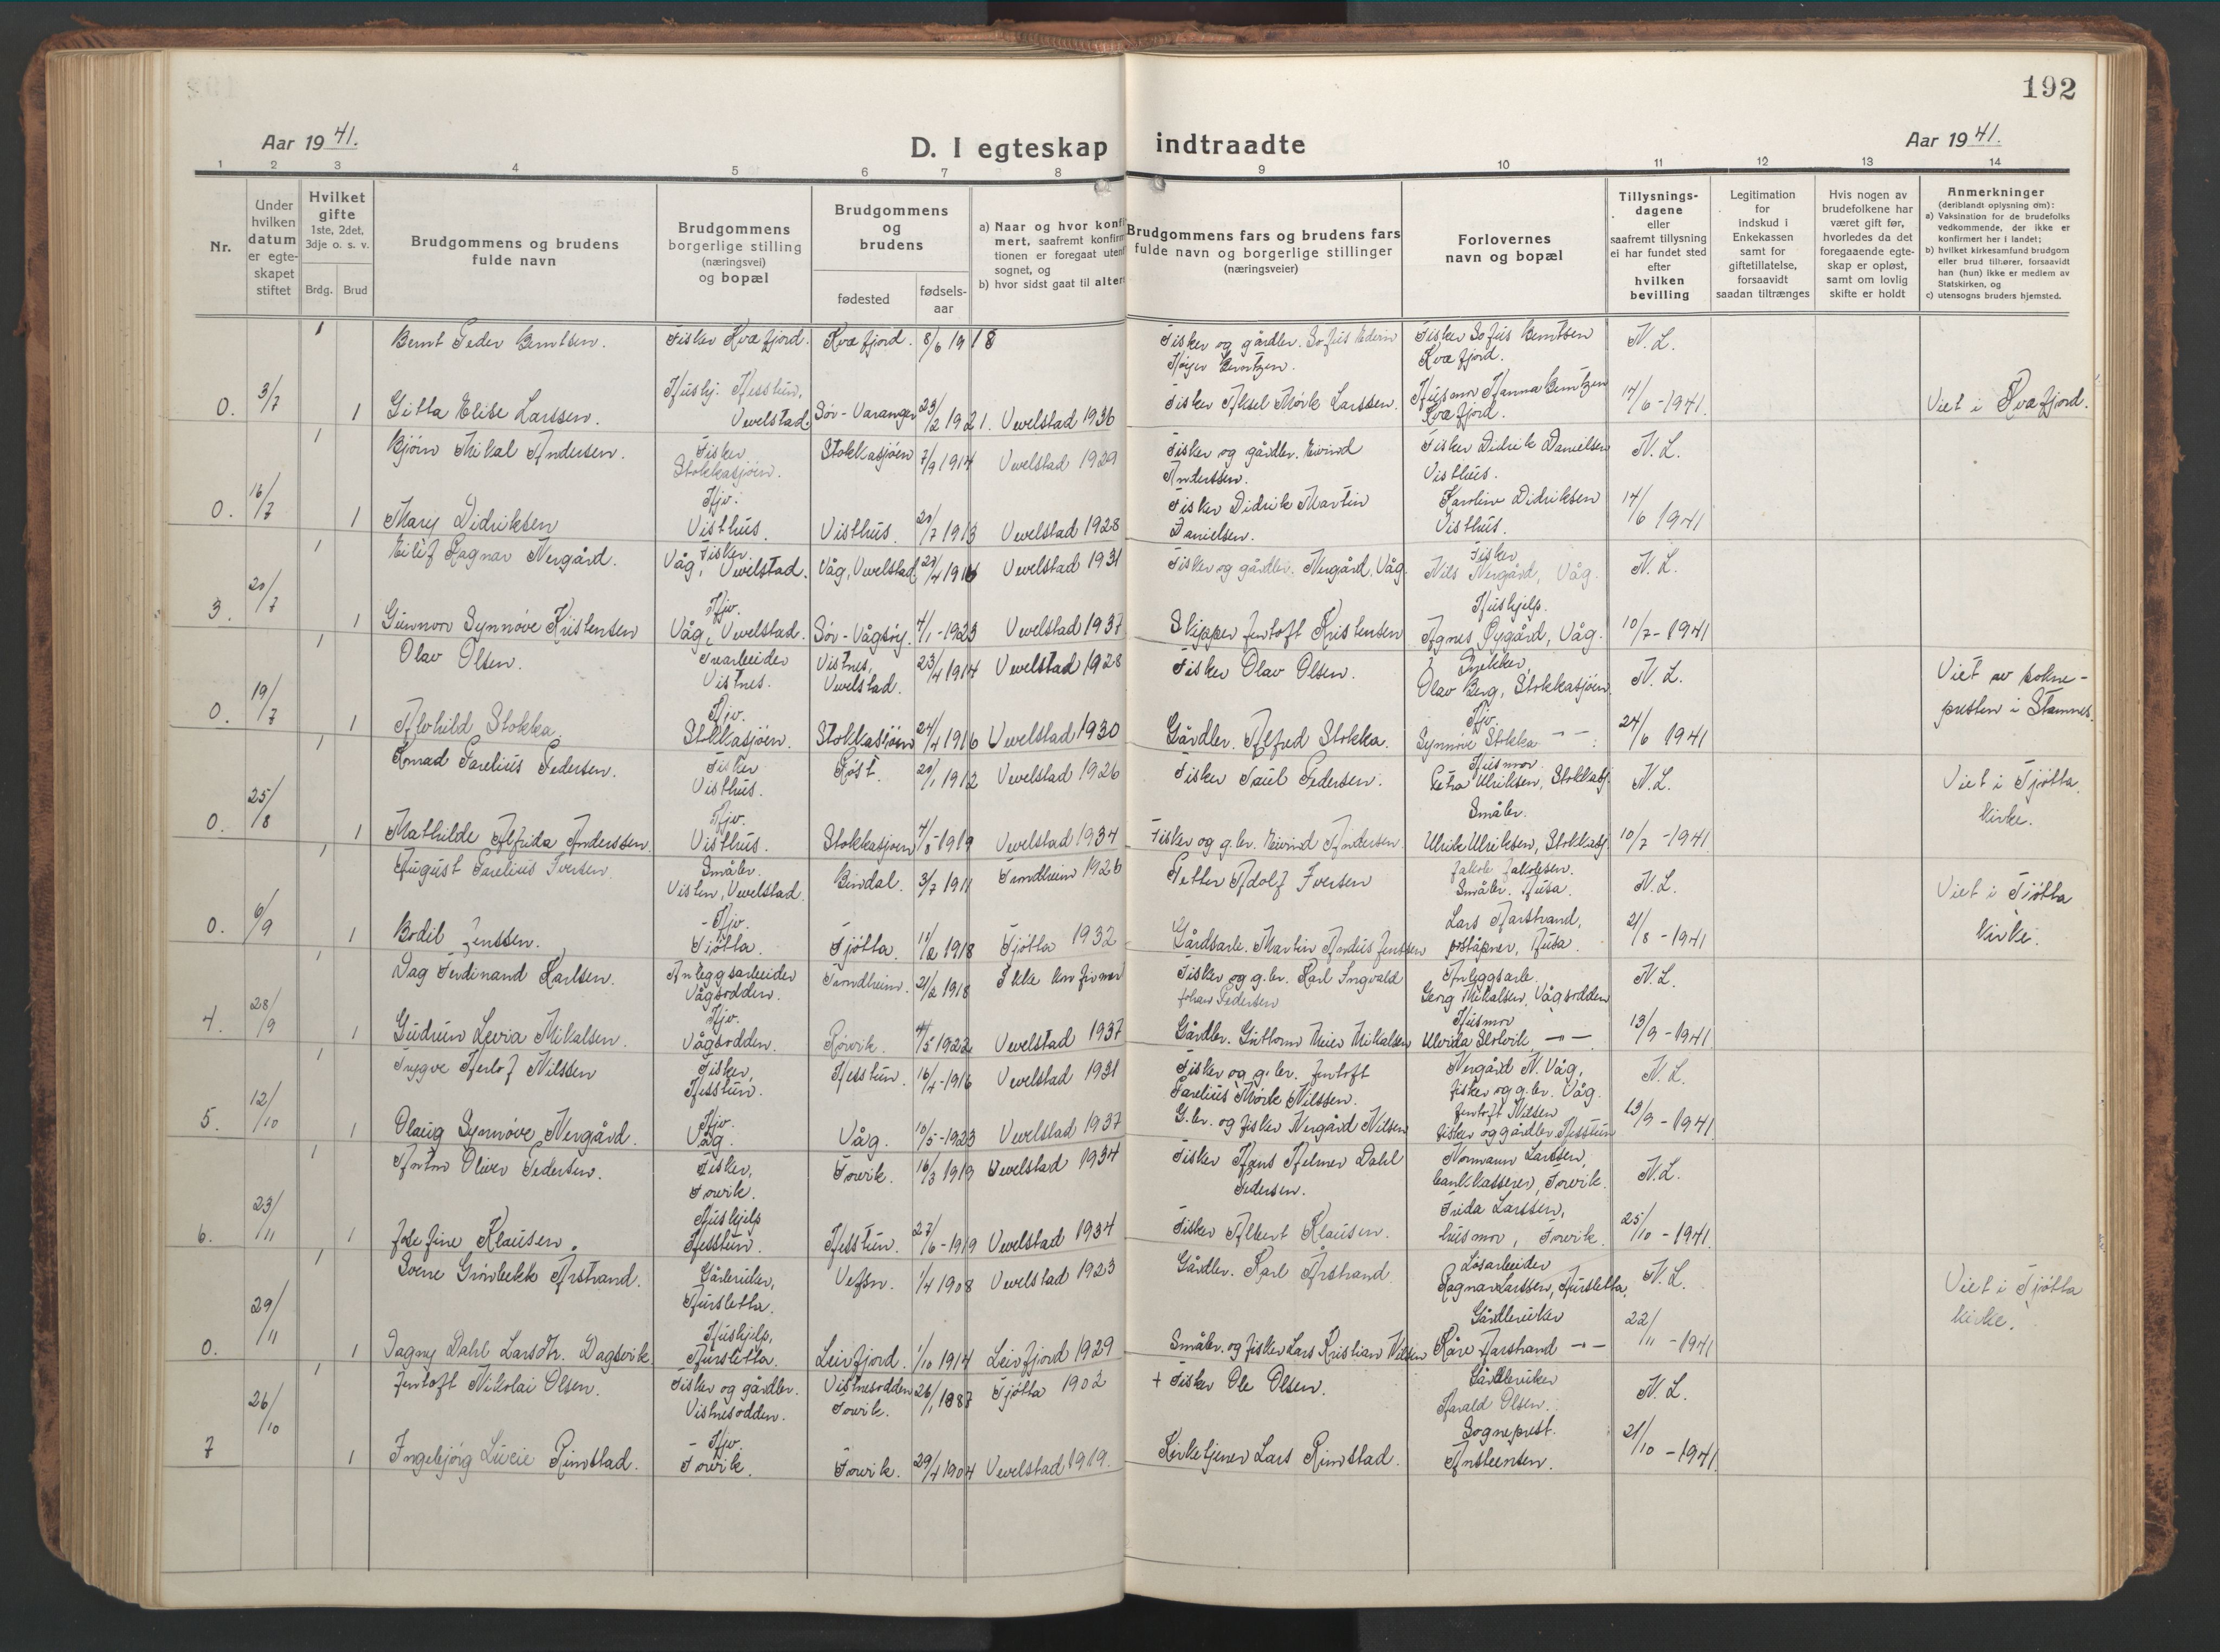 192
Aar 1941.
D. I egteskap indtraadte
Aar 1941.
1 2 3 4 5 6 7 8 9 10 11 12 13 14
Nr.
Under hvilken datum er egteskapet stiftet
Hvilket gifte 1ste, 2det, 3dje o. s. v.
Brdg. Brud
Brudgommens og brudens fulde navn
Brudgommens borgerlige stilling (næringsvei) og bopæl
Brudgommens og brudens
fødested
fødselsaar
a) Naar og hvor konfi
mert, saafremt konfirm
tionen er foregaat uten
sognet, og
b) hvor sidst gaat til alter
Brudgommens fars og brudens fars fulde navn og borgerlige stillinger (næringsveier)
Forlovernes navn og bopæl
Tillysningsdagene eller saafremt tillysning ei har fundet sted efter hvilken bevilling
Legitimation for indskud i Enkekassen samt for giftetillatelse, forsaavidt saadan tiltrænges
Hvis nogen av brudefolkene har været gift før, hvorledes da det foregaaende egteskap er opløst, samt om lovlig skifte er holdt
Anmerkninger (deriblandt oplysning om):
a) Vaksination for de brudefolks vedkommende, der ikke er konfirmert her i landet;
b) hvilket kirkesamfund brudgom eller brud tilhører, forsaavidt han (hun) ikke er medlem av Statskirken, og
c) utensogns bruders hjemsted.
1 Bernt Peder Berntsen. Fisker Kvæfjord. Kvæfjord. 8/6 1918 Fisker og gårdbr. Sofus Edern Høyer Berntzen. Fisker Sofus Berntsen Kvæfjord. N. L.
0. 3/7 1 Gitta Elise Larssen. Hushj. Hesstun, Vevelstad. Sør-Varanger 23/2 1921. Vevelstad 1936 Fisker Aksel Mørk Larssen. Husmor Hanna Berntzen Kvæfjord. 14/6-1941. Viet i Kvæfjord.
1 Bjørn Mikal Andersen. Fisker Stokkasjøen. Stokkasjøen 7/9 1914 Vevelstad 1929 Fisker og gårdbr. Eivind Anderssen. Fisker Didrik Danielsen Visthus. N. L.
0. 16/7 1 Mary Didriksen Hjv. Visthus. Visthus. 20/7 1913 Vevelstad 1928 Fisker Didrik Martin Danielsen. Karoline Didriksen Visthus. 14/6 1941
1 Eilif Ragnar Nergård. Fisker. Våg, Vevelstad. Våg, Vevelstad 1916 Vevelstad 1931 Fisker og gårdbr. Nergård, Våg. Fisker Nils Nergård, Våg. N. L.
3. 20/7 1 Gunnvor Synnøve Kristensen Hjv. Våg, Vevelstad. Sør-Vågsøy. 4/1-1923 Vevelstad 1937 Skipper Jentoft Kristensen Hushjelp. Agnes Øygård, Våg. 10/7-1941
1 Olav Olsen. Trearbeider Vistnes. Vistnes, Vevelstad. 23/4 1914 Vevelstad 1928 Fisker Olav Olsen. Snekker, Olav Berg, Stokkasjøen. N. L. Viet av sokne-
presten i Stamnes.
0. 19/7 1 Alvhild Stokka. Hjv. Stokkasjøen. Stokkasjøen 24/4 1916 Vevelstad 1930 Gårdbr. Alfred Stokka. Hjv. Synnøve Stokka -"- 24/6 1941
1 Konrad Parelius Pedersen. Fisker Visthus. Røst. 20/1 1912 Vevelstad 1926 Fisker Paul Pedersen. Husmor Petra Ulriksen, Stokkasj. N.L. Viet i Tjøtta
kirke.
0. 25/8 1 Mathilde Alfrida Anderssen. Hjv. Visthus. Stokkasjøen 4/8-1919 Vevelstad 1934 Fisker og g.br. Eivind Andersen. Småbr. Ulrik Ulriksen, Stokkasj. 10/7-1941
1 August Parelius Iversen. Småbr. Visten, Vevelstad. Bindal. 3/7 1911 Trondheim 1926 Petter Adolf Iversen Jakob Jakobsen. Småbr. Husa. N.L. Viet i Tjøtta
kirke.
0. 6/9 1 Bodil Jenssen. Hjv. Tjøtta. Tjøtta. 1918 Tjøtta 1932 Gårdsarb. Martin Andeus Jenssen Lars Aarstrand, poståpner, Husa. 21/8-1941
1 Dag Ferdinand Karlsen. Anleggsarbeider Vågsodden. Trondheim. 21/2 1918 Ikke konfirmer Fisker og g.br. Karl Ingvald Johan Pedersen Anleggsarb. Georg Mikalsen, Vågsodden N. L.
4. 28/9 1 Gudrun Levia Mikalsen. Hjv. Vågsodden. Rørvik. 4/5 1922 Vevelstad 1937 Gårdbr. Guttorm Meier Mikalsen Husmor Ulvida Skolvik -"- 13/9-1941
1 Trygve Herlof Nilssen Fisker, Hesstun. Hesstun. 16/4-1916 Vevelstad 1931 Fisker og g.br. Jentoft Parelius Mørk Nilssen. Nergård N. Våg, fisker og g.br. Våg. N. L.
5. 12/10 1 Olaug Synnøve Nergård. Hjv. Våg. Våg. 10/5-1923 Vevelstad 1937 G.br. og fisker Nergård Nilsen Jentoft Nilsen fisker og gårdbr. Hesstun 13/9-1941
1 Morten Oliver Pedersen. Fisker, Forvik. Forvik. 16/3 1919 Vevelstad 1934 Fisker Hans Helmer Dahl Pedersen. Normann Larssen, bankkasserer, Forvik. N.L.
6. 23/11 1 Josefine Klausen. Hushjelp Hesstun. Hesstun. 27/6-1919 Vevelstad 1934 Fisker Albert Klausen. Frida Larssen, husmor, Forvik. 25/10-1941.
1 Sverre Grønbekk Årstrand. Gårbruker, Aursletta. Vefsn. 1/4 1908 Vevelstad 1923 Gårdbr. Karl Årstrand. Løsarbeider Ragnar Larssen, Aursletta. N. L. Viet i Tjøtta
kirke.
0. 29/11 1 Dagny Dahl Larsdtr. Dagsvik Hushjelp, Aursletta. Leirfjord. 1/10 1914 Leirfjord 1929 Småbr. og fisker Lars Kristian Nilsen Gårdbruker Kåre Aarstrand -"- 22/11-1941
1 Jentoft Nikolai Olsen. Fisker og gårdbr. Vistnesodden. Vistnesodden Forvik. 26/1 1887 Tjøtta 1902 + Fisker Ole Olsen. Gårdbruker Harald Olsen. N. L.
7 26/10 1 Ingebjørg Lucie Rimstad. Hjv. Forvik. Forvik. 29/4 1904 Vevelstad 1919. Kirketjener Lars Rimstad. Sogneprest. Ansteensen. 21/10-1941.